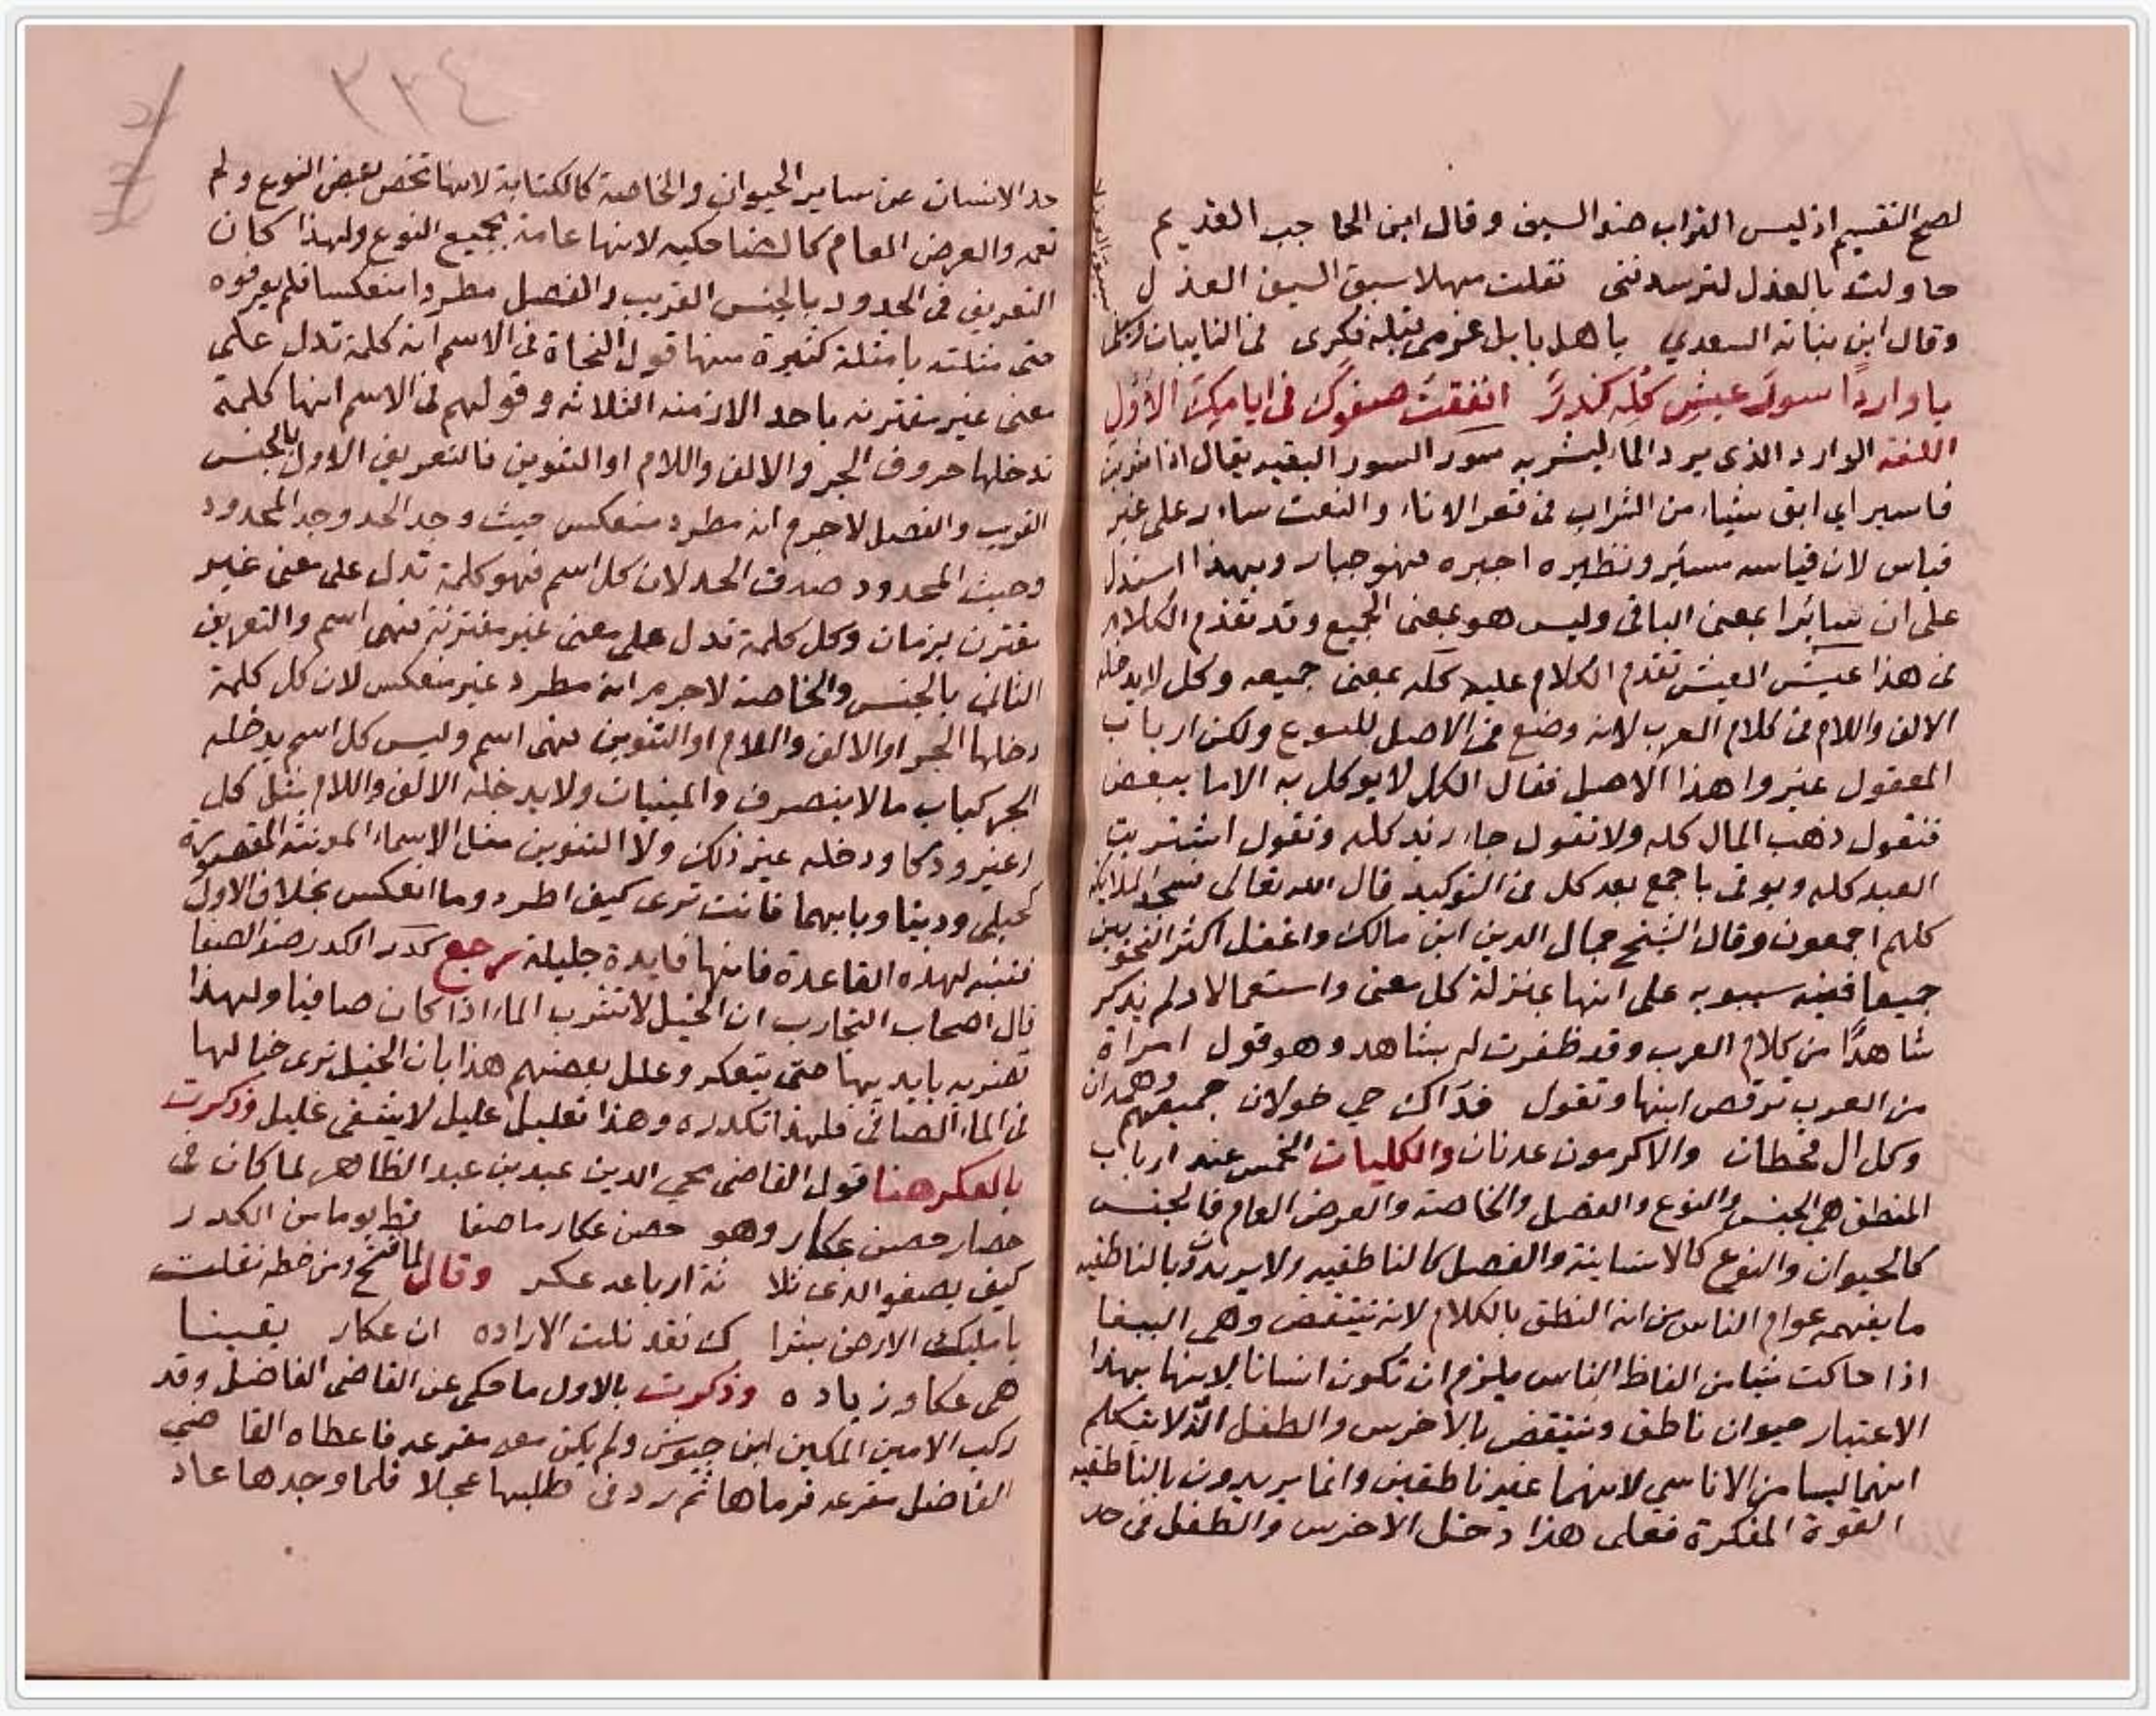 لصح التقسيم اذ ليس القراب ضد السيف وقال ابن الحاجب القديم
حاولت بالعذل لترسدنني فقلت مهلا سبق السيف العذل
وقال ابن نباته السعدي ياهل بابل عزمى قبله فكرى فى النايبات
يا واردًا سورَ عيشٍ كلِّه كدرٌ انفقت صفوك فى ايامك الأول
اللغة الوارد الذى يرد الماء ليشربه سور السور البقيه يقال اذا شربت
فاسير اي ابق شيئا من الشراب فى قعر الاناء والنعت سار على غير
قياس لان قياسه مسئر ونظيره اجبره فهو جبار وبهذا استدل
على ان سائرا بمعنى الباقى وليس هو بمعنى الجميع وقد تقدم الكلام
فى هذا عيش العيش تقدم الكلام عليه كله بمعنى جميعه وكل لا يدخله
الالف واللام فى كلام العرب لانه وضع فى الاصل ولكن ارباب
المعقول غيروا هذا الاصل فقال الكل لا يوكل به الا ما يبعض
فتقول ذهب المال كله ولا تقول جاء زيد كله وتقول اشتريت
العبد كله ويوتى باجمع بعد كل فى التوكيد قال الله تعالى فسجد الملايكه
كلهم اجمعون وقال الشيخ جمال الدين ابن مالك واغفل اكثر النحويين
جميعا ونبه سيبويه على انها بمنزلة كل معنى واستعمالا ولم يذكر
شاهدًا من كلام العرب وقد ظفرت له بشاهد وهو قول امراة
من العرب ترقص ابنها وتقول فداك حي خولان جميعهم وهمدان
وكل ال قحطان والاكرمون عدنان والكليات الخمس عند ارباب
المنطق هى الجنس والنوع والفصل والخاصة والعرض العام فالجنس
كالحيوان والنوع كالانسانية والفصل كالناطقيه ولا يريدون بالناطقيه
ما يفهمه عوام الناس من انه النطق بالكلام لانه ينتقض وهى الببغا
اذا حاكت شيا من الفاظ الناس يلزم ان تكون انسانا لانها بهذا
الاعتبار حيوان ناطق وينتقض بالاخرس والطفل الذ لا يتكلم
انهما ليسا من الاناسي لانهما غير ناطقين وانما يريدون بالناطقيه
القوة المفكرة فعلى هذا دخل الاخرس والطفل فى حد
٣٣٤
حد الانسان عن ساير الحيوان والخاصة كالكتابة لانها تخص بعض النوع ولم
تعمه والعرض العام كالضاحكيه لانها عامة بجميع النوع ولهذا كان
التعريف فى الحدود بالجنس القريب والفصل مطردا منعكسا فلم يعرفوه
حتى مثلته بامثلة كثيرة منها قول النحاة فى الاسم انه كلمة تدل على
معنى غير مقترنه باحد الازمنه الثلاثه وقولهم فى الاسم انها كلمة
تدخلها حروف الجر والالف واللام او التنوين فالتعريف الاول بالجنس
القريب والفصل لاجرم انه مطرد منعكس حيث وجد الحد وجد المحدود
وحيث المحدود صدق الحد لان كل اسم فهو كلمة تدل على معنى غير
مقترن بزمان وكل كلمة تدل على معنى غير مقترنة فهى اسم والتعريف
الثانى بالجنس والخاصة لاجرم انه مطرد غير منعكس لان كل كلمة
دخلها الجر او الالف واللام او التنوين فهى اسم وليس كل اسم يدخله
الجر كباب ما لا ينصرف والمبنيات ولا يدخله الالف واللام مثل كل
وغير ودكا ودخله غير ذلك ولا التنوين مثل الاسماء المونثة المقصورة
كحبلى ودنيا وبابهما فانت ترى كيف اطرد وما انعكس بخلاف الاول
فتنبه لهذه القاعدة فانها فايدة جليلة رجع كدر الكدر ضد الصفا
قال اصحاب التجارب ان الخيل لا تشرب الماء اذا كان صافيا ولهذا
تضربه بايديها حتى يتعكر وعلل بعضهم هذا بان الخيل ترى خيالها
فى الماء الصافى فلهذا تكدره وهذا تعليل عليل لا يشفى غليل وذكرت
بالعكر هنا قول القاضى محي الدين عبد بن عبد الظاهر لما كان فى
حصار حصن عكار وهو حصن عكار ما صفا قط يوما من الكدر
كيف يصفو الذى ثلا ثة ارباعه عكر وقال لما فتح ومن خطه نقلت
يا مليك الارض بشرا ك نقد نلت الاراده ان عكار يقينا
هى عكا وزياده وذكرت بالاول ما حكى عن القاضى الفاضل وقد
ركب الامين المكين ابن جيوش ولم يكن معه مقرعه فاعطاه القاضي
الفاضل مقرعه فرماها ثم رد فى طلبها عجلا فلما وجدها عاد